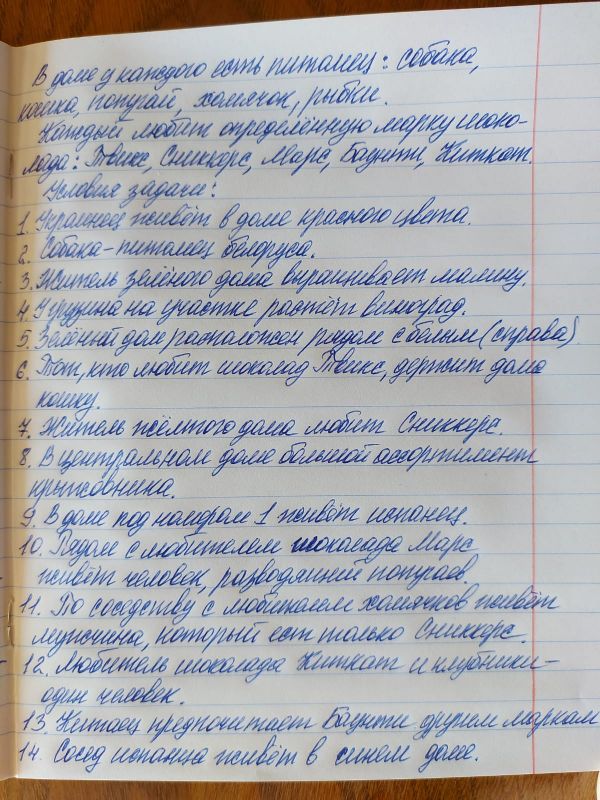 В доме у каждого есть питомец: собака,
кошка, попугай, хомячок, рыбки.
Каждый любит определённую марку шоко-
лада: Твикс, Сникерс, Марс, Баунти, Киткат.
Условия задачи:
1. Украинец живёт в доме красного цвета.
2. Собака - питомец белоруса.
3. Житель зелёного дома выращивает малину.
4. У грузина на участке растёт виноград.
5. Зелёный дом расположен рядом с белым (справа).
6. Тот, кто любит шоколад Твикс, держит дома
кошку.
7. Житель жёлтого дома любит Сниккерс.
8. В центральном доме большой ассортимент
крыжовника.
9. В доме под номером 1 живёт испанец.
10. Рядом с любителем шоколада Марс
живёт человек, разводящий попугаев.
11. По соседству с любителем хомячков живёт
мужчина, который ест только Сниккерс.
12. Любитель шоколада Киткат и клубники -
один человек.
13. Китаец предпочитает Баунти другим маркам
14. Сосед испанца живёт в синем доме.